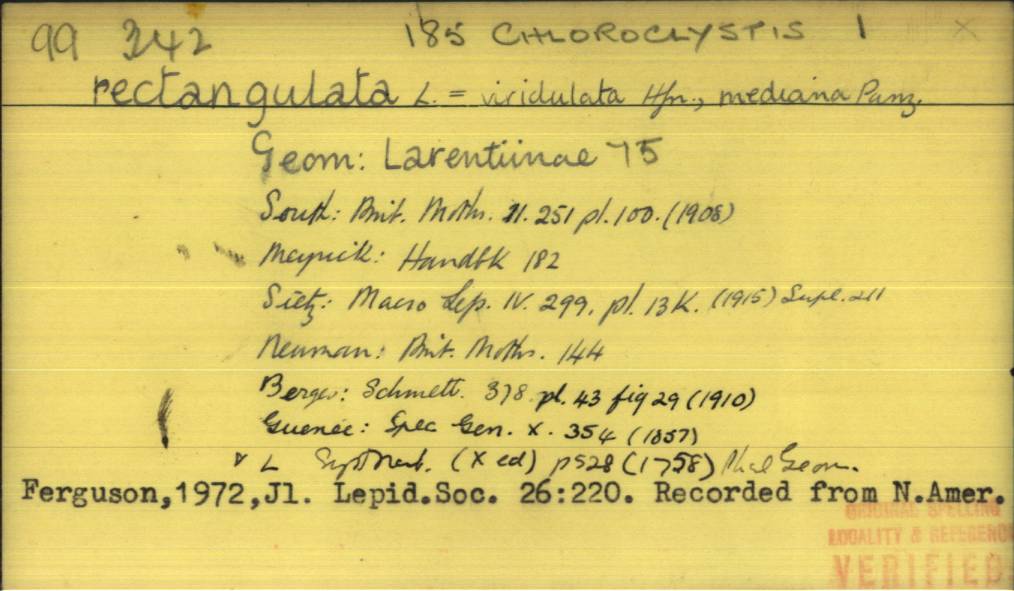 99 342 185 CHLOROCLYSTIS 1 X
rectangulata L. = viridulata Hfn., mediana Panz.
Geom: Larentiinae 75
South: Brit. Moths. II. 251 pl. 100. (1908)
Meyrick: Handbk 182
Sietz: Macro Lep. IV. 299, pl. 13K. (1915) Supl. 211
Newman: Brit. Moths. 144
Berge: Schmett. 378 pl. 43 fig 29 (1910)
Guenée: Spec Gen. X. 354 (1857)
L Syst Nat. (X ed) p528 (1758) Phal Geom.
Ferguson,1972,Jl. Lepid.Soc. 26:220. Recorded from N.Amer.
ORIGINAL SPELLING
LOCALITY & REFERENC
VERIFIED